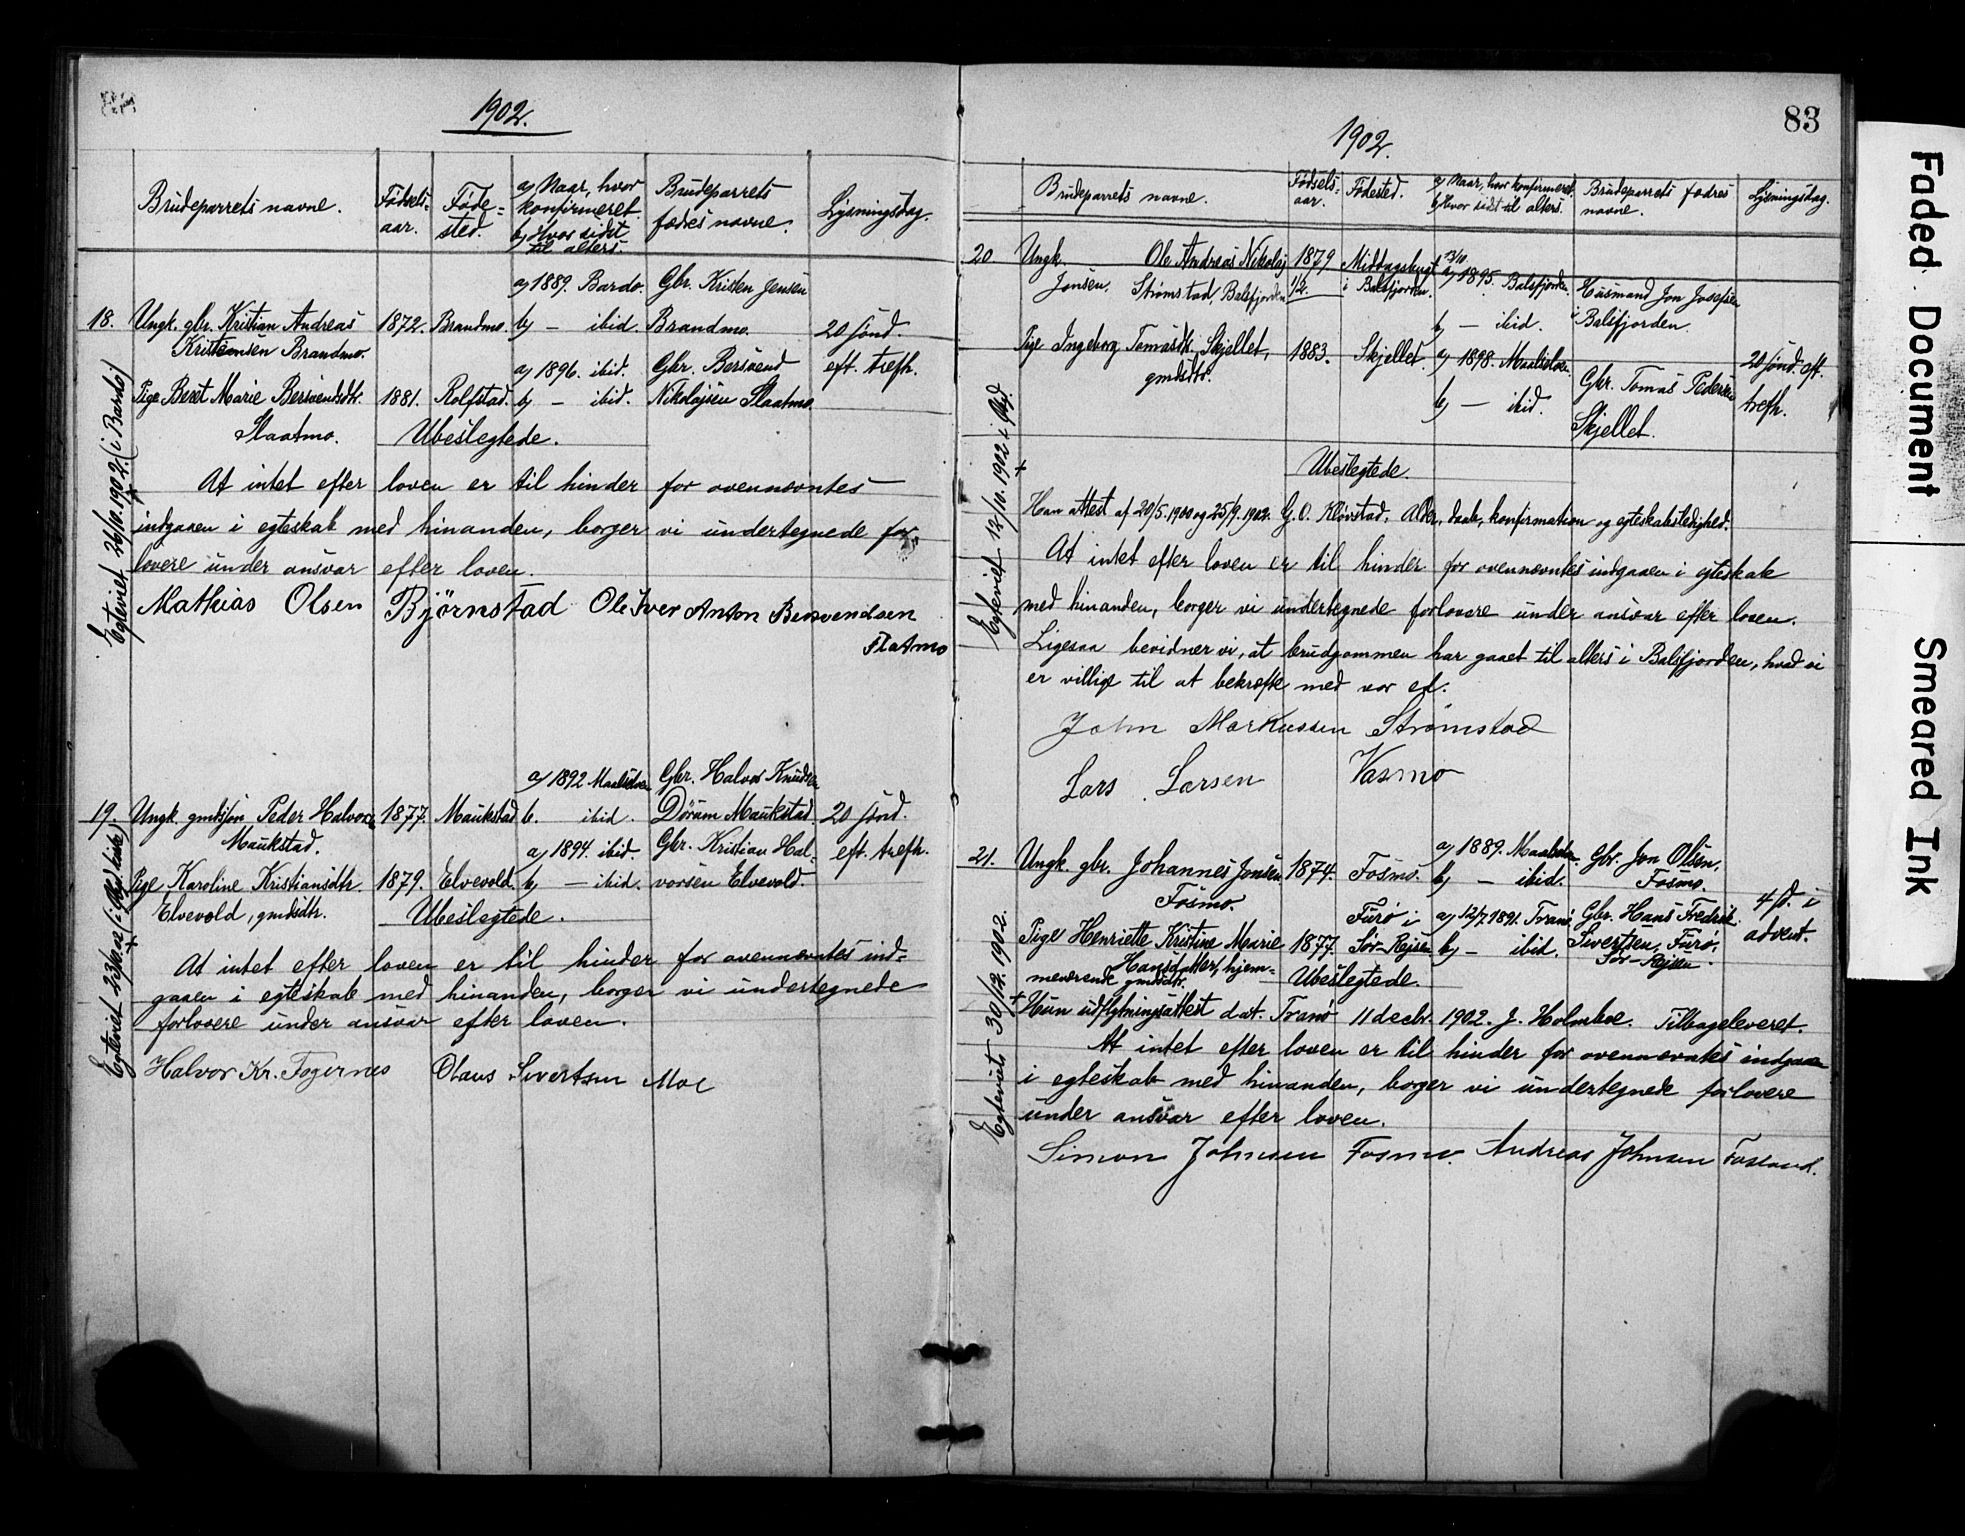 1902.
Brudeparrets navne.
Fødsels-
aar.
Føde-
sted.
a) Naar, hvor
konfirmeret.
b) Hvor sidst
til alters.
Brudeparrets
fædres navne.
Lysningsdag.
18. Ungk. gbr. Kristian Andreas
Kristensen Brandmo.
1872. Brandmo.
a) 1889. Bardo.
b) — ibid.
Gbr. Kristen Jensen
Brandmo.
20 sønd.
eft. trefh.
Pige Beret Marie Bersvendsdtr.
Slaatmo.
1881. Rolfstad.
a) 1896. ibid.
b) — ibid.
Gbr. Bersvend
Nikolajsen Slaatmo.
Ubeslegtede.
Egteviet 26/10. 1902. (i Bardo)
At intet efter loven er til hinder for ovennævntes
indgaaen i egteskab med hinanden, borger vi undertegnede for-
lovere under ansvar efter loven.
Mathias Olsen Bjørnstad Ole Iver Anton Bersvendsen
Slatmo
19. Ungk. gmdssøn Peder Halvors.
Maukstad.
1877. Maukstad
a) 1892 Maalselven
b. ibid.
Gbr. Halvor Knudsen
Dørum Maukstad.
20 sønd.
eft. trefh.
Pige Karoline Kristiansdtr.
Elvevold, gmdsdtr.
1879. Elvevold.
a) 1894. ibid.
b) — ibid.
Gbr. Kristian Hal-
vorsen Elvevold.
Ubeslegtede.
Egteviet 23/10. 02
At intet efter loven er til hinder for ovennævntes ind-
gaaen i egteskab med hinanden, borger vi undertegnede
forlovere under ansvar efter loven.
Halvor Kr. Fogernes Olaus Sivertsen Moe
83
1902.
Brudeparrets navne.
Fødsels-
aar.
Fødested.
a) Naar, hvor konfirmeret.
b) Hvor sidst til alters.
Brudeparrets fædres
navne.
Lysningsdag.
20. Ungk. Ole Andreas Nikolaj
Jonsen. Strømstad, Balsfjorden
1879
Middagsbugt
i Balsfjorden.
a) 1895. Balsfjorden
b) — ibid.
Husmand Jon Josefsen
i Balsfjorden.
Pige Ingeborg Tomasdtr. Skjellet,
gmdsdtr.
1883. Skjellet
a) 1898. Maalselven
b) — ibid.
Gbr. Tomas Pedersen
Skjellet.
20 sønd. eft.
trefh.
Ubeslegtede.
Egteviet 12/10. 1902
Han attest af 20/5. 1900 og 25/9. 1902. G. O. Kløvstad. Alder, daab, konfirmation og egteskabsledighed.
At intet efter loven er til hinder for ovennævntes indgaaen i egteskab
med hinanden, borger vi undertegnede forlovere under ansvar efter loven.
Ligesaa bevidner vi, at brudgommen har gaaet til alters i Balsfjorden, hvad vi
er villige til at bekræfte med vor ed.
John Markussen Strømstad
Lars Larsen Vasmo
21. Ungk. gbr. Johannes Jonsen
Fosmo.
1874. Fosmo.
a) 1889. Maalselven.
b) — ibid.
Gbr. Jon Olsen,
Fosmo.
4 s. i
advent.
Pige Henriette Kristine Marie
Hansdatter, hjem-
meværende gmdsdtr.
1877.
Furø i
Sør-Rejsen
a) 12/7 1891. Tranø
b) — ibid.
Gbr. Hans Fredrik
Sivertsen, Furø.
Sør-Rejsen.
Ubeslegtede.
Egteviet 30/12. 1902.
Hun udflytningsattest dat. Tranø 11 decbr. 1902. J. Holmboe. Tilbageleveret.
At intet efter loven er til hinder for ovennævntes indgaaen
i egteskab med hinanden, borger vi undertegnede forlovere
under ansvar efter loven.
Simon Johnsen Fosmo. Andreas Johnsen Fosland.
Faded Document
Smeared Ink